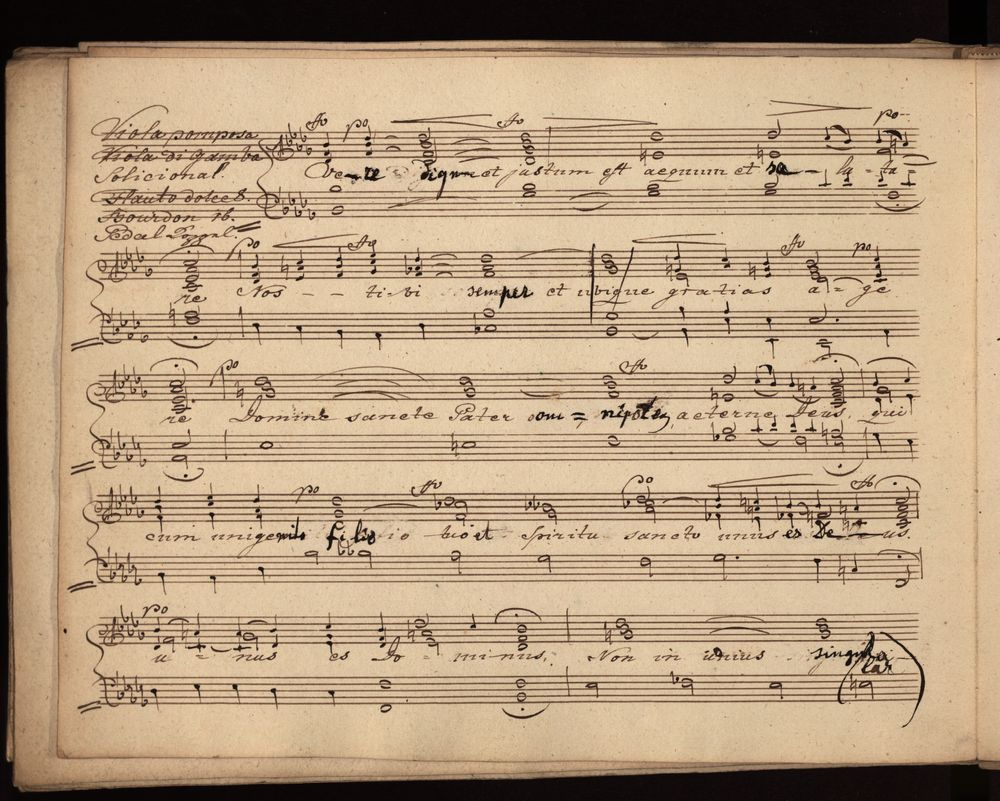 Viola pomposa
Viola di Gamba
Solicional.
Flauto dolce 8.
Bourdon 16.
Pedal
po
po
Ve - re dignum et justum est aequum et sa - lu - ta -
po
po
re Nos - - ti-bi semper et ubique gratias a - ge
po
re Domine sancte Pater om = nipotes, aeterne Deus, qui
po
po
cum unigenito filio io tuo et Spiritu sancto unus es De - us.
po
u - nus es Do - minus, Non in unius singula-
lar